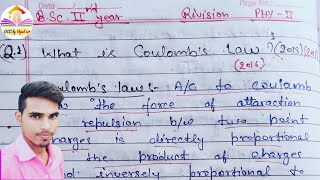 Date
Page No.
B.Sc. IInd year Revision PHY-II
Q.2) What is Coulomb's law? (2015)
(2016)
Coulomb's law:- A/C to coulamb
the force of attaraction
repulsion b/w two point
charges is directly proportional
the product of charges
inversely proportional to